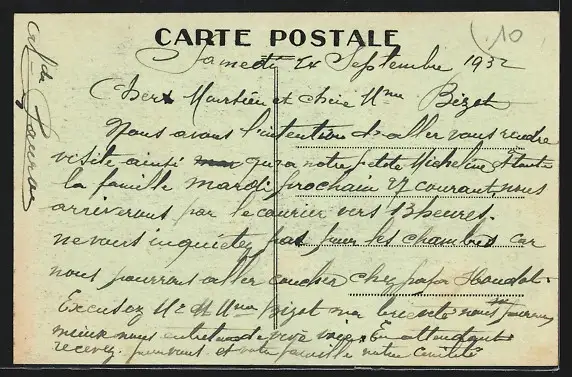 CARTE POSTALE
10
Samedi 24 Septembre 1932
Cher Monsieur et chère Mme Bizot
Nous avons l'intention d'aller vous rendre
visite ainsi qu'a notre petite Micheline et toute
la famille mardi prochain 27 courant, nous
arriverons par le courrier vers 13 heures.
ne vous inquietez pas pour les chambres car
nous pourrons aller coucher chez papa
Excusez Mr et Mme Bizot ma brièveté nous pourrons
mieux nous entretenir de vive voix. En attendant
recevez et votre famille notre